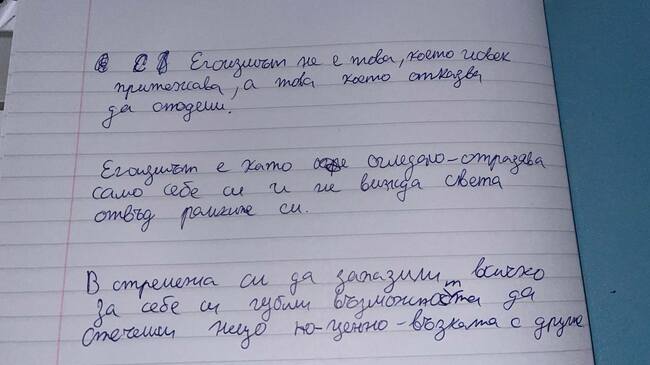 Егоизмът не е това, което човек
притежава, а това което отказва
да сподели.
Егоизмът е като огледало - отразява
само себе си и не вижда света
отвъд рамките си.
В стремежа си да запазим всичко
за себе си губим възможността да
спечелим нещо по-ценно - възката с другите